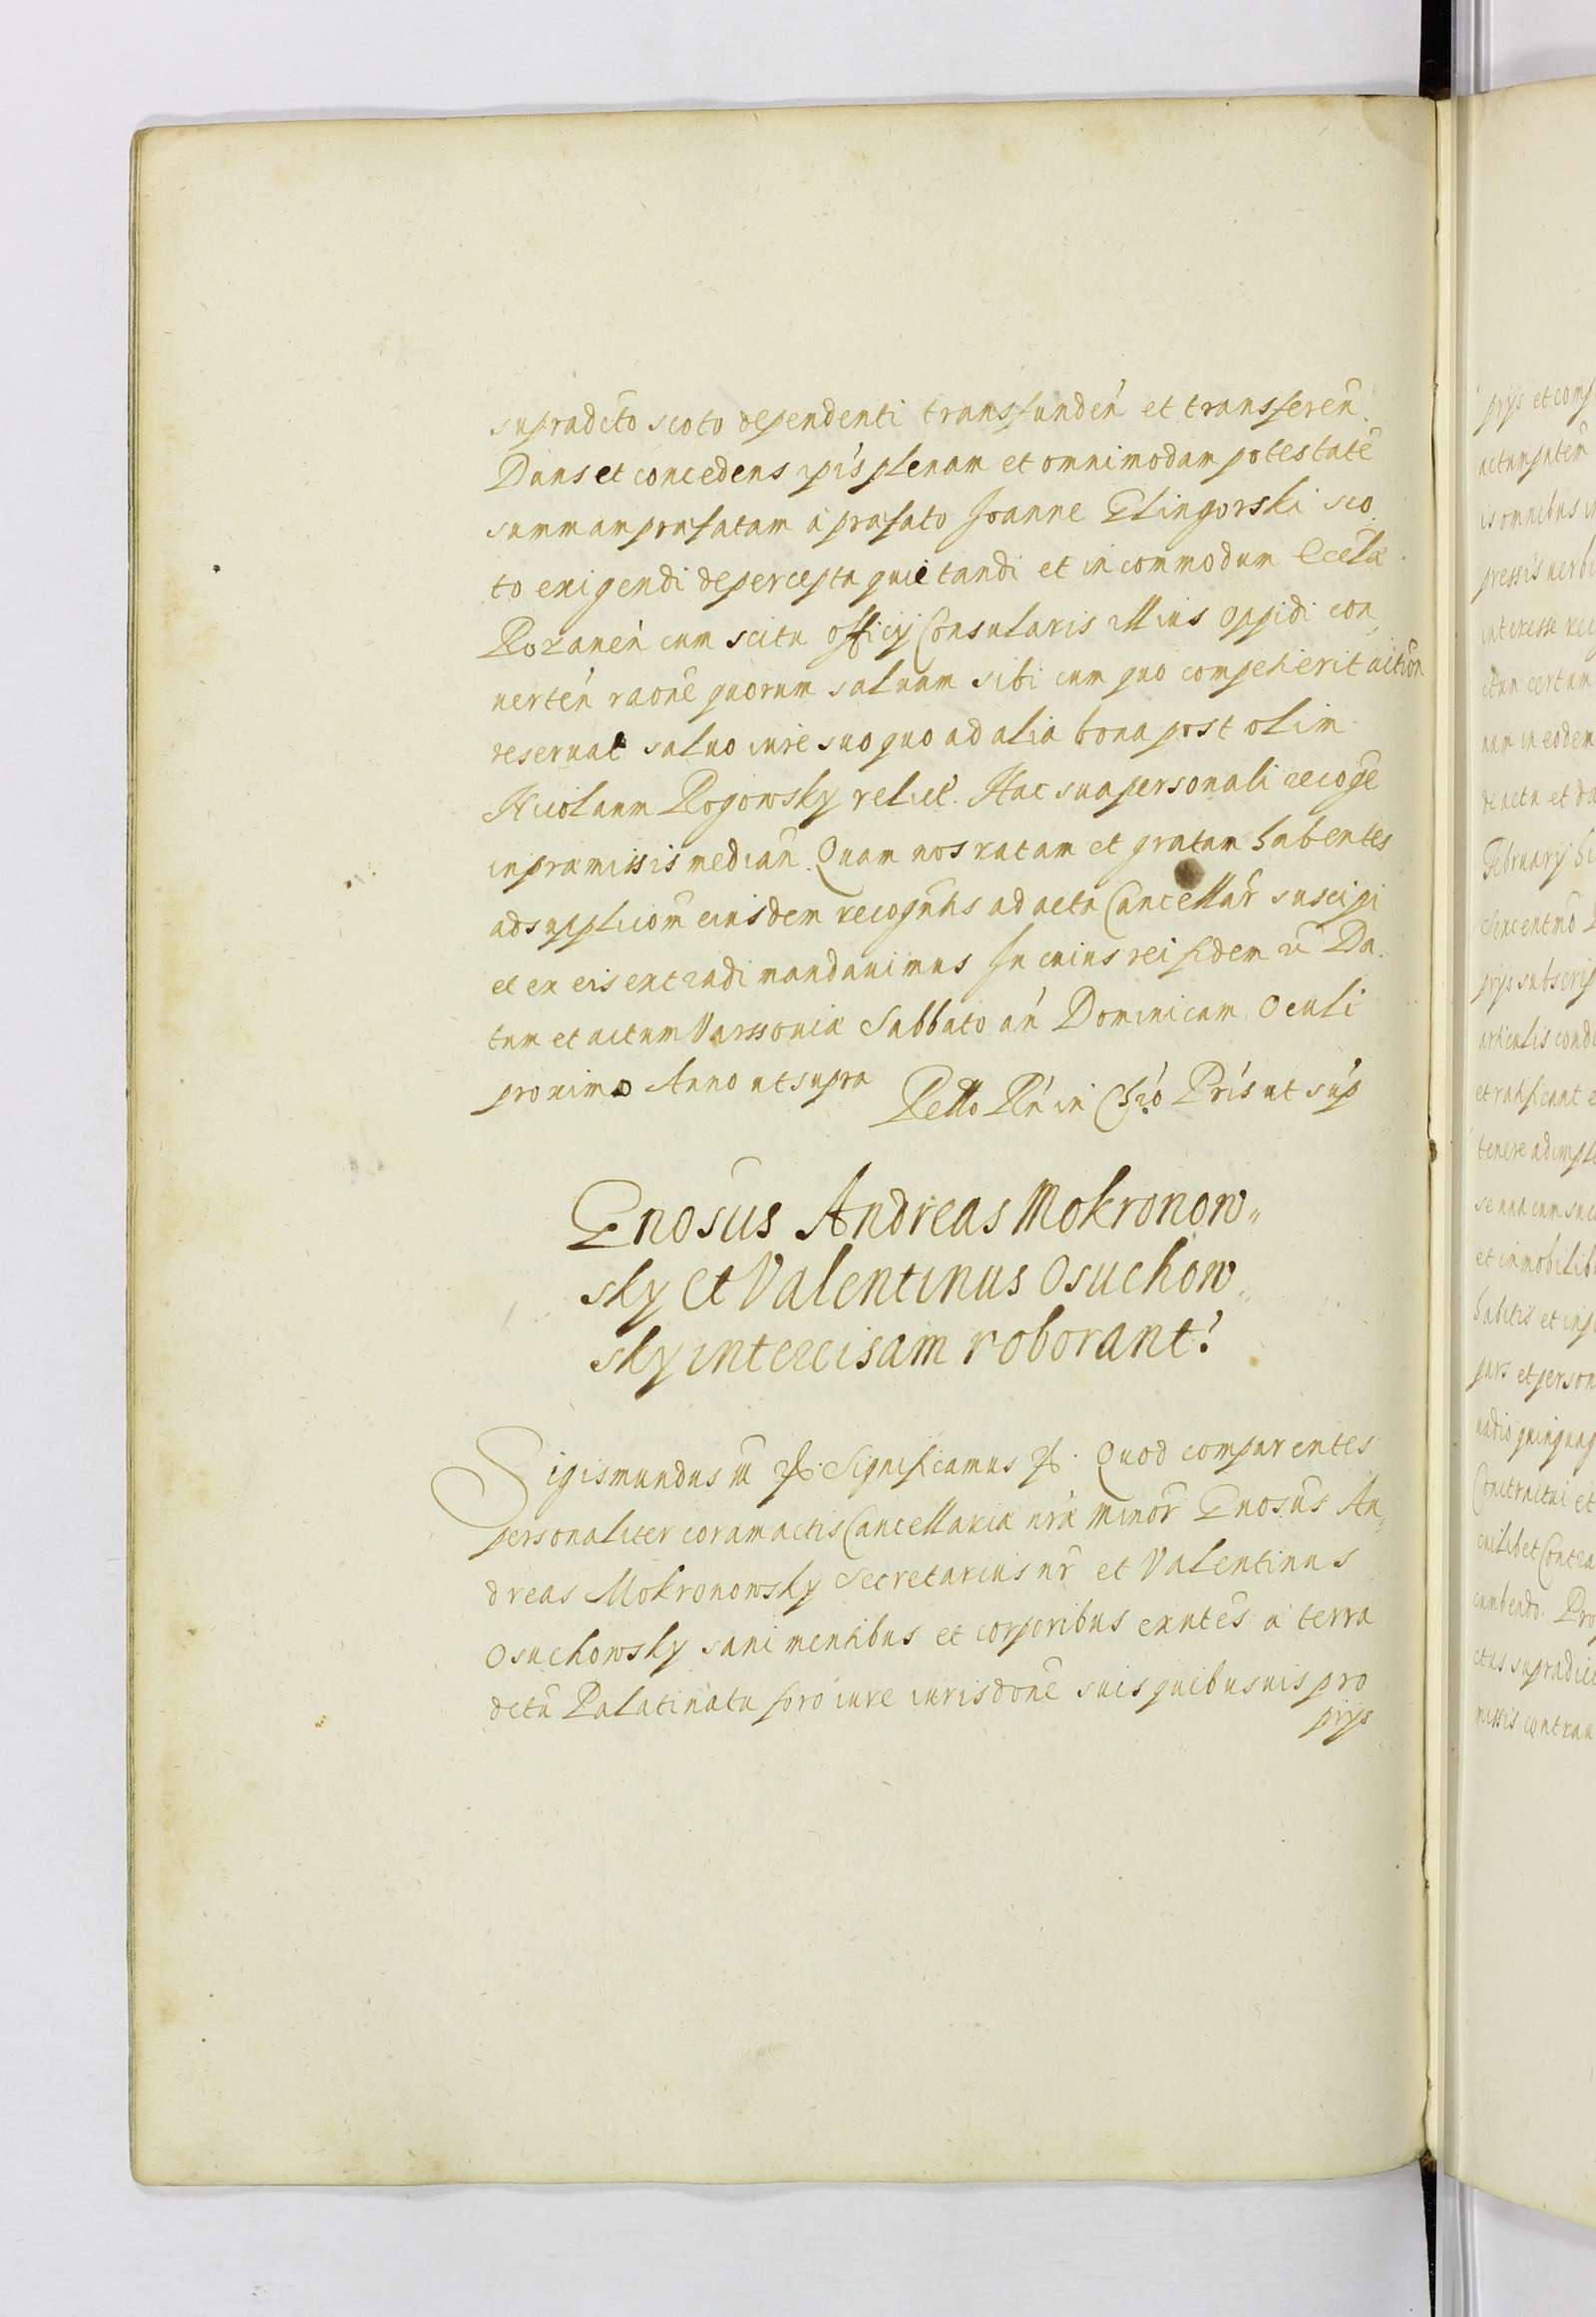 supradcto scoto dependenti transfunden et transferen.
Dans et concedens ipis plenam et omnimodam potestatē
summam prafatam a prafato Joanne Glingorski sco
to exigendi de percepta quietandi et in commodum Eccla
Rozanen cum scitu officij Consularis illius oppidi con
uerten raone quorum saluam sibi cum quo competierit action
reseruat saluo iure suo quo ad alia bona post olim
Nicolaum Rogowsky relict. Hac sua personali recoge
in pramissis median. Quam nos ratam et gratam habentes
ad supplicom eiusdem recognhs ad acta Cancellar suscipi
et ex eis extradi mandauimus In cuius rei fidem rc Da
tum et actum Varssouiæ Sabbato an Dominicam Oculi
proximo Anno ut supra
Rello Rn in Chro Pris ut sup
Gnosus Andreas Mokronow„
sky et Valentinus Osuchow„
sky intercisam roborant.
Sigismundus III rc. Significamus rc. Quod comparentes
personaliter coram actis Cancellariæ nræ minor Gnosus An„
dreas Mokronowsky Secretarius nr et Valentinus
Osuchowsky sani mentibus et corporibus exntes a terra
dctu Palatinatu foro iure iurisdone suis quibusuis pro
prijs
prijs et comp
is omnibus in
pressis uerb
interesse rec
tum certam
num in eodem
de actu et da
February
prijs subscrip
articulis condi
et ratificant e
tenere adimple
se una cum suc
et inmobilib
habitis et inp
pars et person
uadio quinquag
Contractui et
cuilibet Contra
cumbendo. Pro
ctus supradic
missis contrau